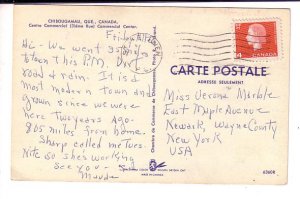 CHIBOUGAMAU, QUE., CANADA.
Centre Commercial (3ième Rue) Commercial Center.
Friday Nite
Hi - We went 35
town this P.M. Dirt
road & rain. It is a
most modern town and
grown since we were
here Two years ago -
805 miles from home.
Sharp called me Tues
Nite so shes working
See you - Sat
Maude
CANADA
CARTE POSTALE
ADRESSE SEULEMENT
Miss Verona Marble
East Maple Avenue
Newark, Wayne County
New York
USA
MADE IN CANADA